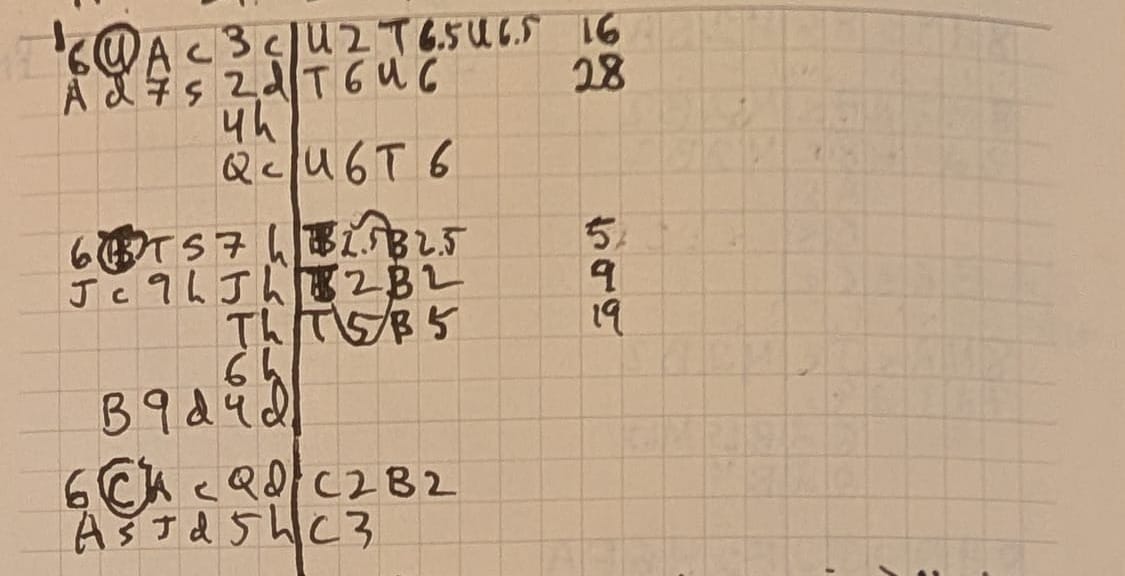 6 U A c 3 c U 2 T 6.5 U 6.5 16
A d 7 s 2 d T 6 U 6 28
4 h
Q c U 6 T 6
6 B T S 7 h B 2.5 B 2.5 5
J c 9 h J h B 2 B 2 9
T h T 5 B 5 19
6 h
B 9 d 4 d
6 C A c Q d C 2 B 2
A s J d 5 h C 3